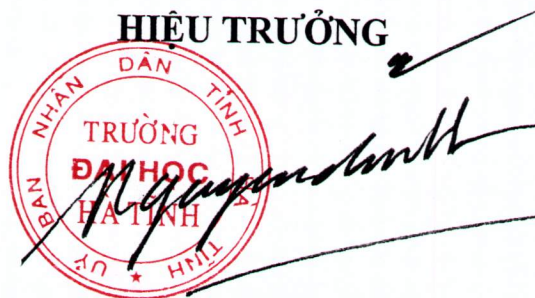 HIỆU TRƯỞNG
UỶ BAN NHÂN DÂN TỈNH HÀ TĨNH
TRƯỜNG
ĐẠI HỌC
HÀ TĨNH